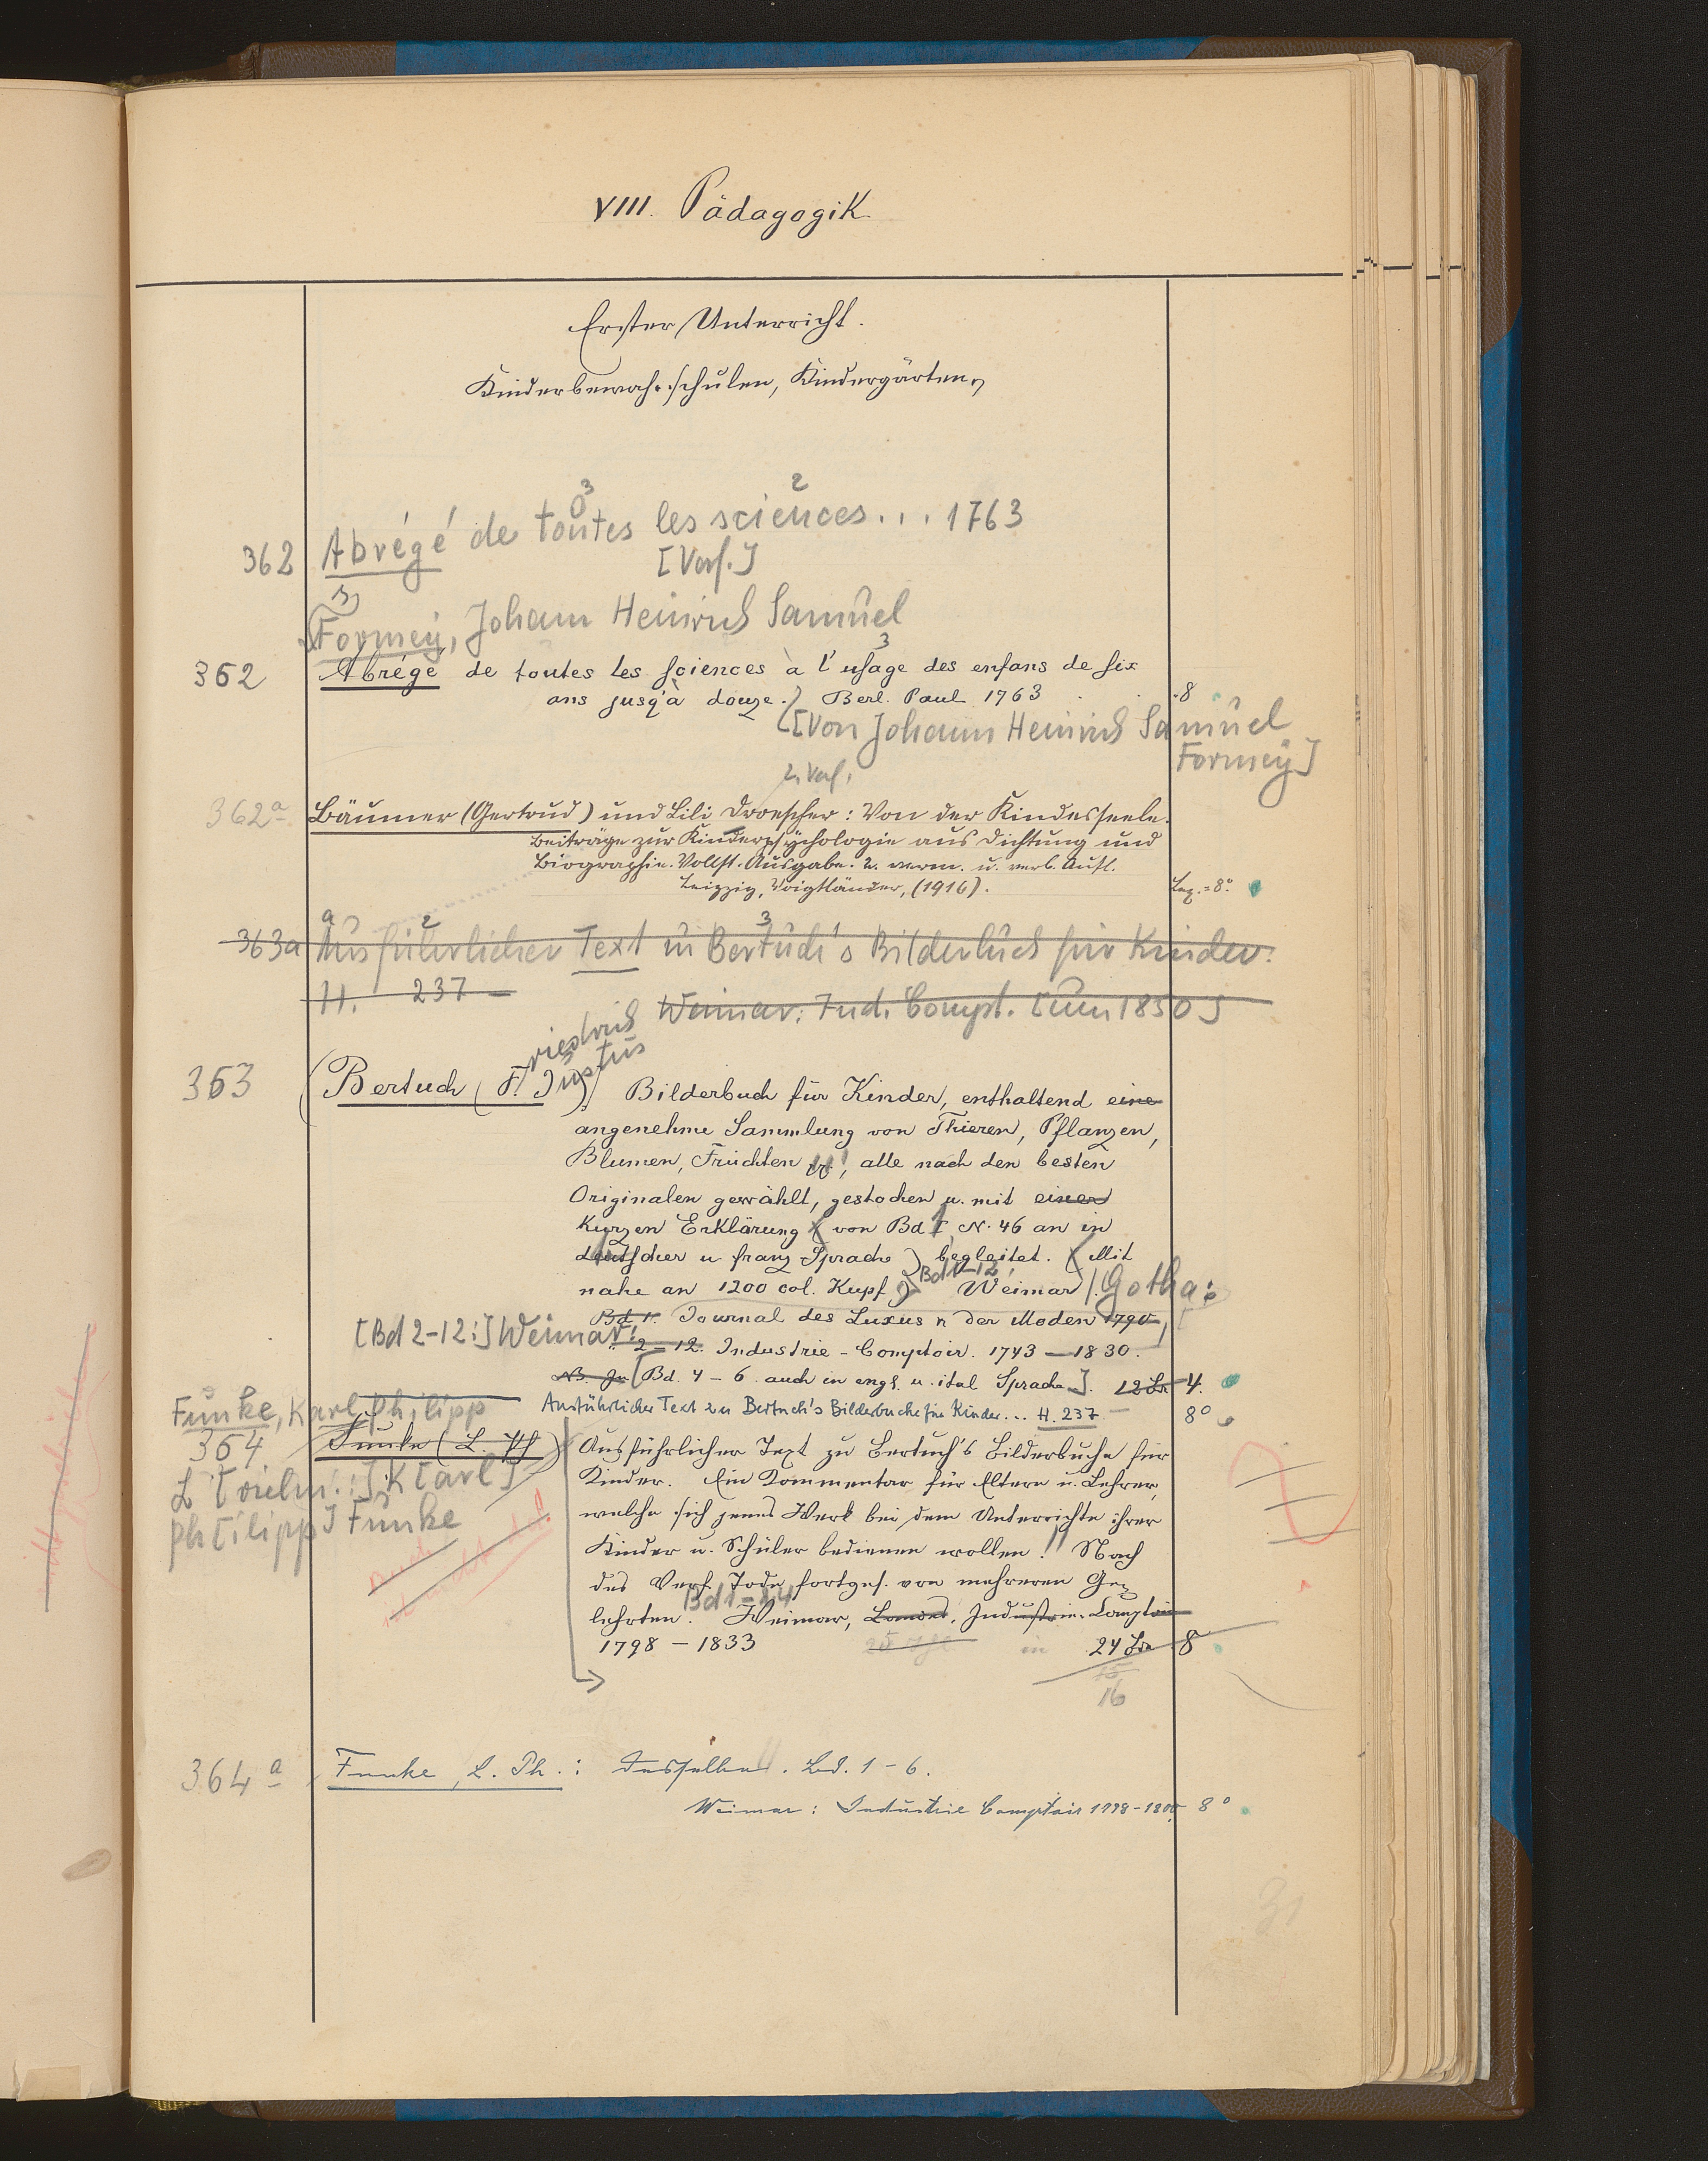 VIII. Pädagogik
Erster Unterricht.
Kinderbewahrschulen, Kindergärten
3 2
362 Abrégé de toutes les sciences... 1763
[Verf.]
Formey, Johann Heinrich Samuel
3
362 Abrégé de toutes les sciences à l'usage des enfans de six
ans jusq'à douze. Berl. Paul 1763 8
[Von Johann Heinrich Samuel
Formey]
2. Verf.
362a Bäumer (Gertrud) und Lili Droescher: Von der Kindesseele.
Beiträge zur Kinderpsychologie aus Dichtung und
Biographie. Vollst. Ausgabe. 2. verm. u. verb. Aufl.
Leipzig, Voigtländer, (1916). Lex.=8°.
a 2 3
363a Ausführlicher Text zu Bertuch's Bilderbuch für Kinder.
H. 237
Weimar: Ind. Compt. [um 1830]
riedrich
ustus
363 Bertuch (F. J.) Bilderbuch für Kinder, enthaltend eine
angenehme Sammlung von Thieren, Pflanzen,
Blumen, Früchten, alle nach den besten
Originalen gewählt, gestochen u. mit einer
kurzen Erklärung (von Bd I, N. 46 an in
deutscher u franz Sprache) begleitet. (Mit
nahe an 1200 col. Kupf.) Bd 1-12 Weimar / Gotha:
Bd 1. Journal des Luxus u der Moden 1790
[Bd 2-12:] Weimar:
2-12. Industrie-Comptoir. 1793-1830.
[Bd. 4-6 auch in engl. u. ital Sprache]. 12 Bde 4.
Ausführlicher Text zu Bertuch's Bilderbuche für Kinder... H. 237 8°
Funke, Karl Philipp
364 Funke (C. Ph) Ausführlicher Text zu Bertuch's Bilderbuche für
Kinder. Ein Kommentar für Eltern u. Lehrer,
K[arl]
welche sich jenes Werk bei dem Unterrichte ihrer
Ph[ilipp] Funke
Kinder u. Schüler bedienen wollen! Nach
des Verf. Tode fortges. von mehreren Ge-
Bd 1-24
lehrten. Weimar, Landes, Industrie-Comptoir
1798-1833 in 24 Bde 8
16
364a Funke, C. Ph.: Dasselbe. Bd. 1-6.
Weimar: Industrie Comptoir 1798-1800 8°
31